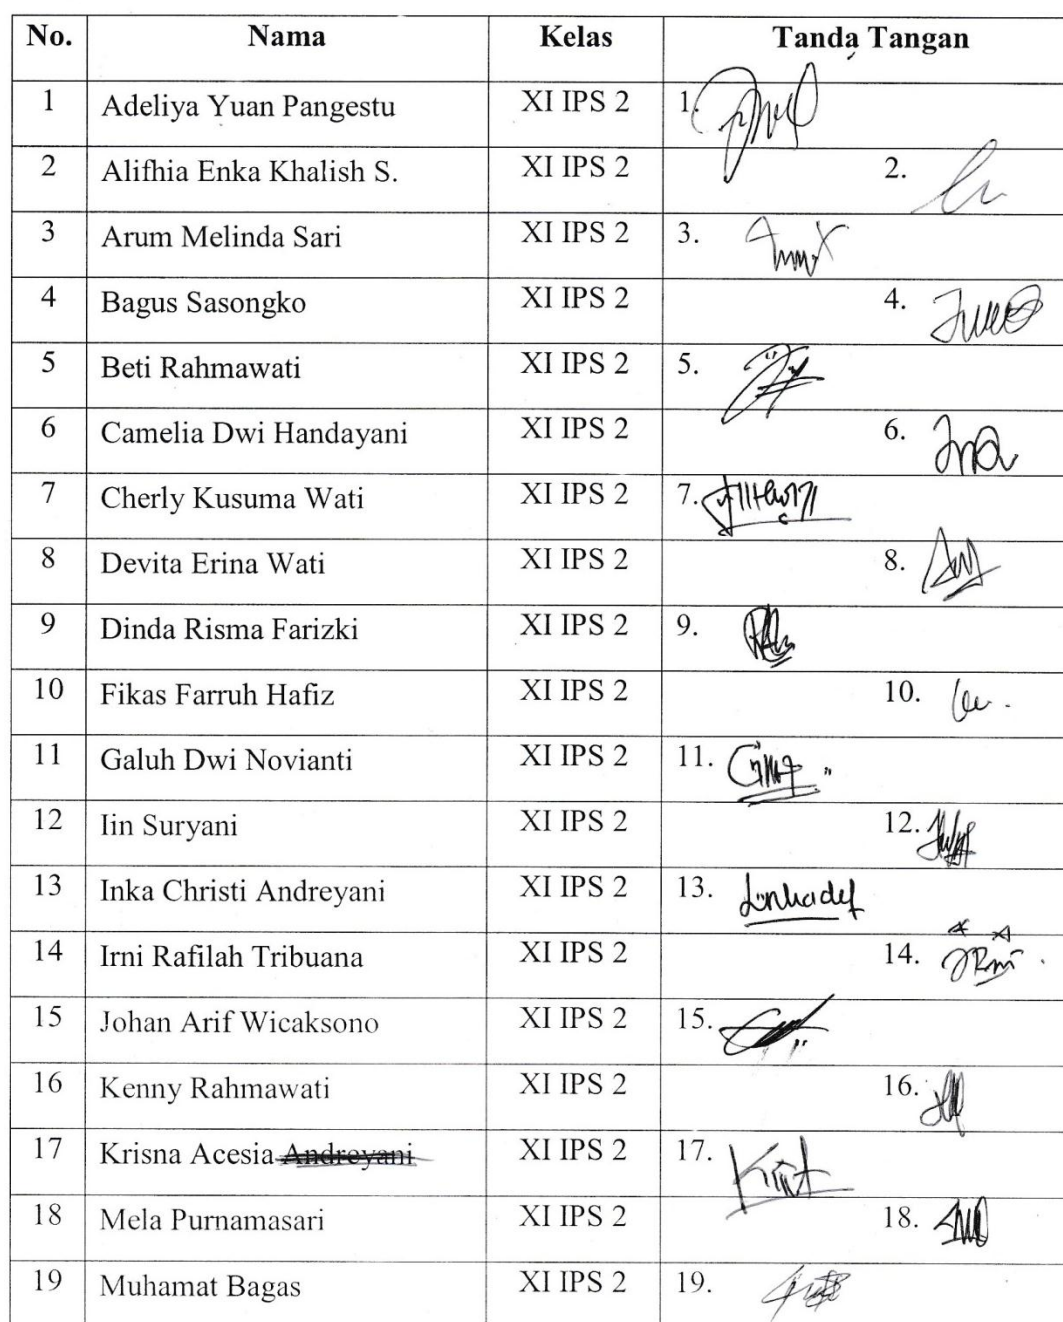 No. Nama Kelas Tanda Tangan
1 Adeliya Yuan Pangestu XI IPS 2 1.
2 Alifhia Enka Khalish S. XI IPS 2 2.
3 Arum Melinda Sari XI IPS 2 3.
4 Bagus Sasongko XI IPS 2 4.
5 Beti Rahmawati XI IPS 2 5.
6 Camelia Dwi Handayani XI IPS 2 6.
7 Cherly Kusuma Wati XI IPS 2 7.
8 Devita Erina Wati XI IPS 2 8.
9 Dinda Risma Farizki XI IPS 2 9.
10 Fikas Farruh Hafiz XI IPS 2 10.
11 Galuh Dwi Novianti XI IPS 2 11.
12 Iin Suryani XI IPS 2 12.
13 Inka Christi Andreyani XI IPS 2 13.
14 Irni Rafilah Tribuana XI IPS 2 14.
15 Johan Arif Wicaksono XI IPS 2 15.
16 Kenny Rahmawati XI IPS 2 16.
17 Krisna Acesia Andreyani XI IPS 2 17.
18 Mela Purnamasari XI IPS 2 18.
19 Muhamat Bagas XI IPS 2 19.